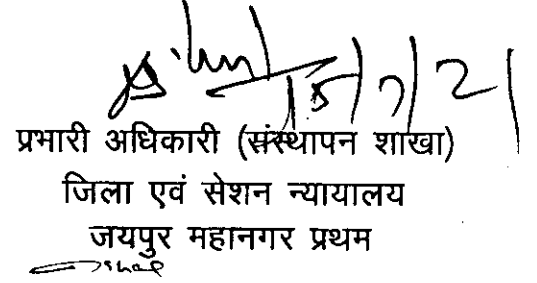 15/7/21
प्रभारी अधिकारी (संस्थापन शाखा)
जिला एवं सेशन न्यायालय
जयपुर महानगर प्रथम